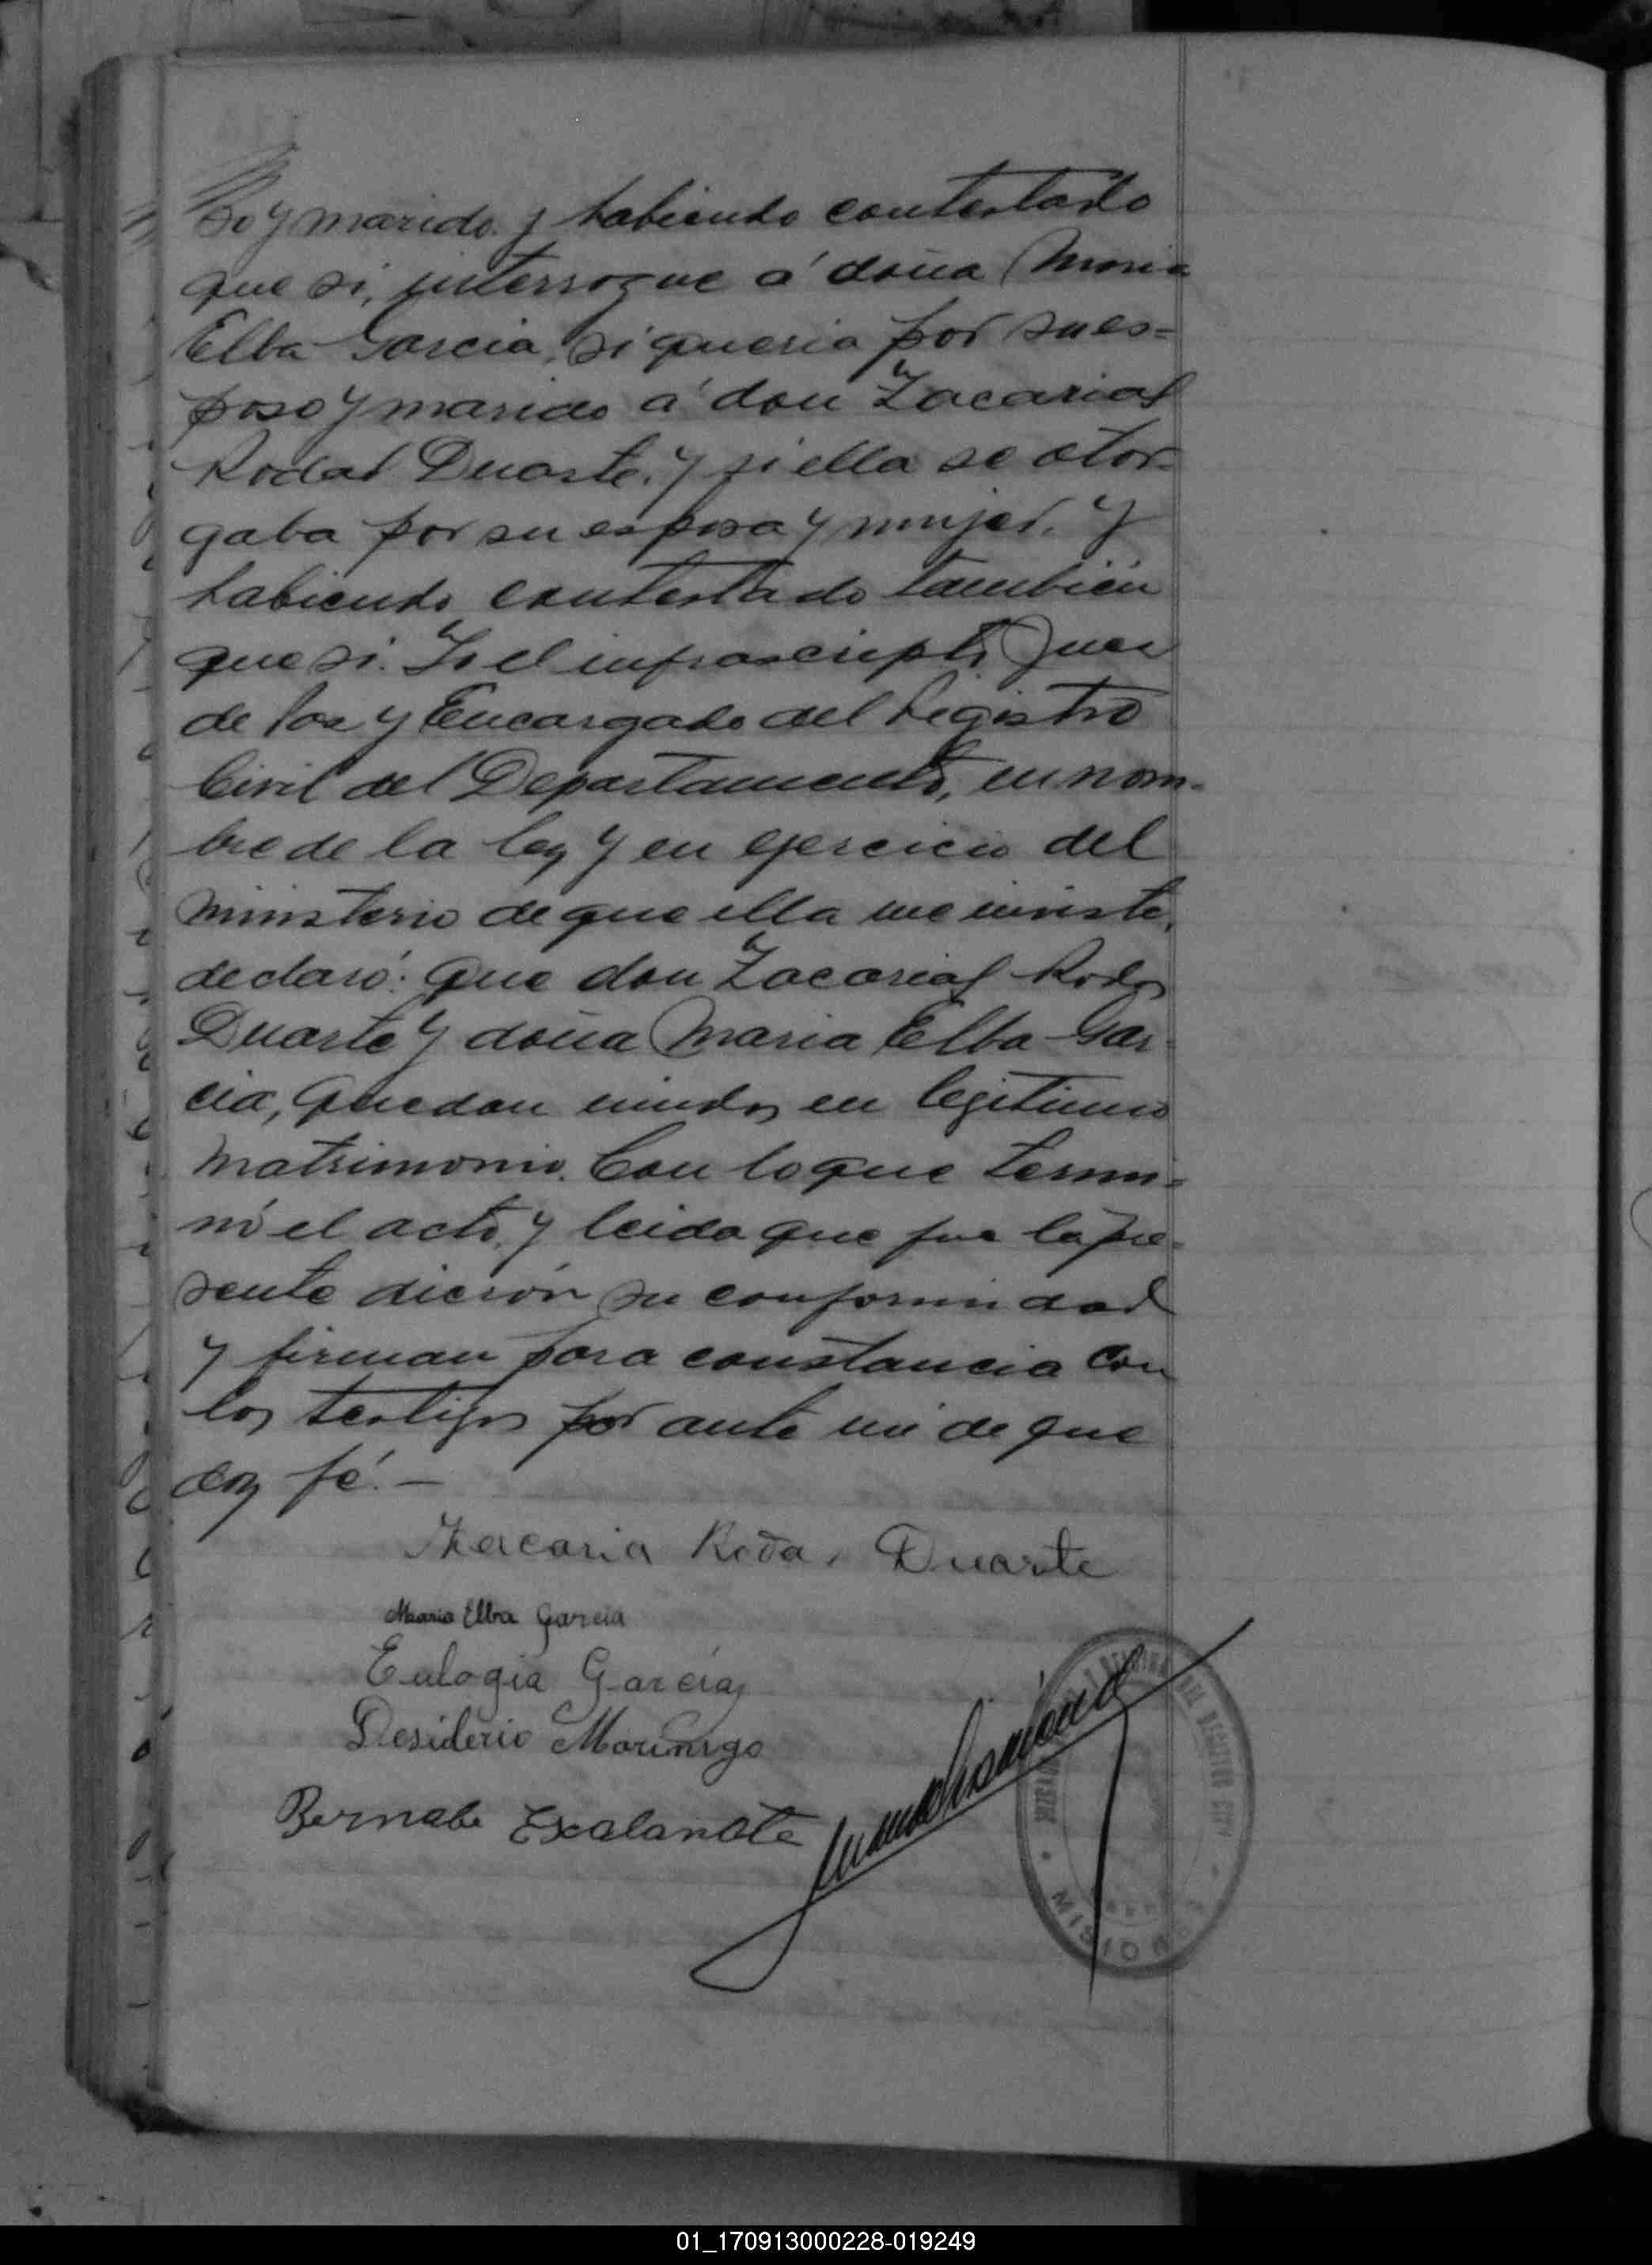 so y marido. y habiendo contestado
que si, interrogue á doña Maria
Elba Garcia, si queria por su es=
poso y marido á don Zacarias
Rodas Duarte, y si ella se otor=
gaba por su esposa y mujer. Y
habiendo contestado también
que si. Yo el infrascripto Juez
de Paz y Encargado del Registro
Civil del Departamento, en nom-
bre de la ley y en ejercicio del
ministerio de que ella me inviste,
declaró: que don Zacarias Rodas
Duarte y doña Maria Elba Gar-
cia, quedan unidos en legitimo
matrimonio. Con lo que termi=
nó el acto, y leida que fue la pre-
sente dierón su conformidad
y firman para constancia con
los testigos por ante mi de que
doy fé. —
Zacaria Roda. Duarte
Maria Elba Garcia
Eulogia Garcia
Desiderio Morinigo
Bernabe
DEL REGISTRO CIVIL
MISIONES
01_170913000228-019249